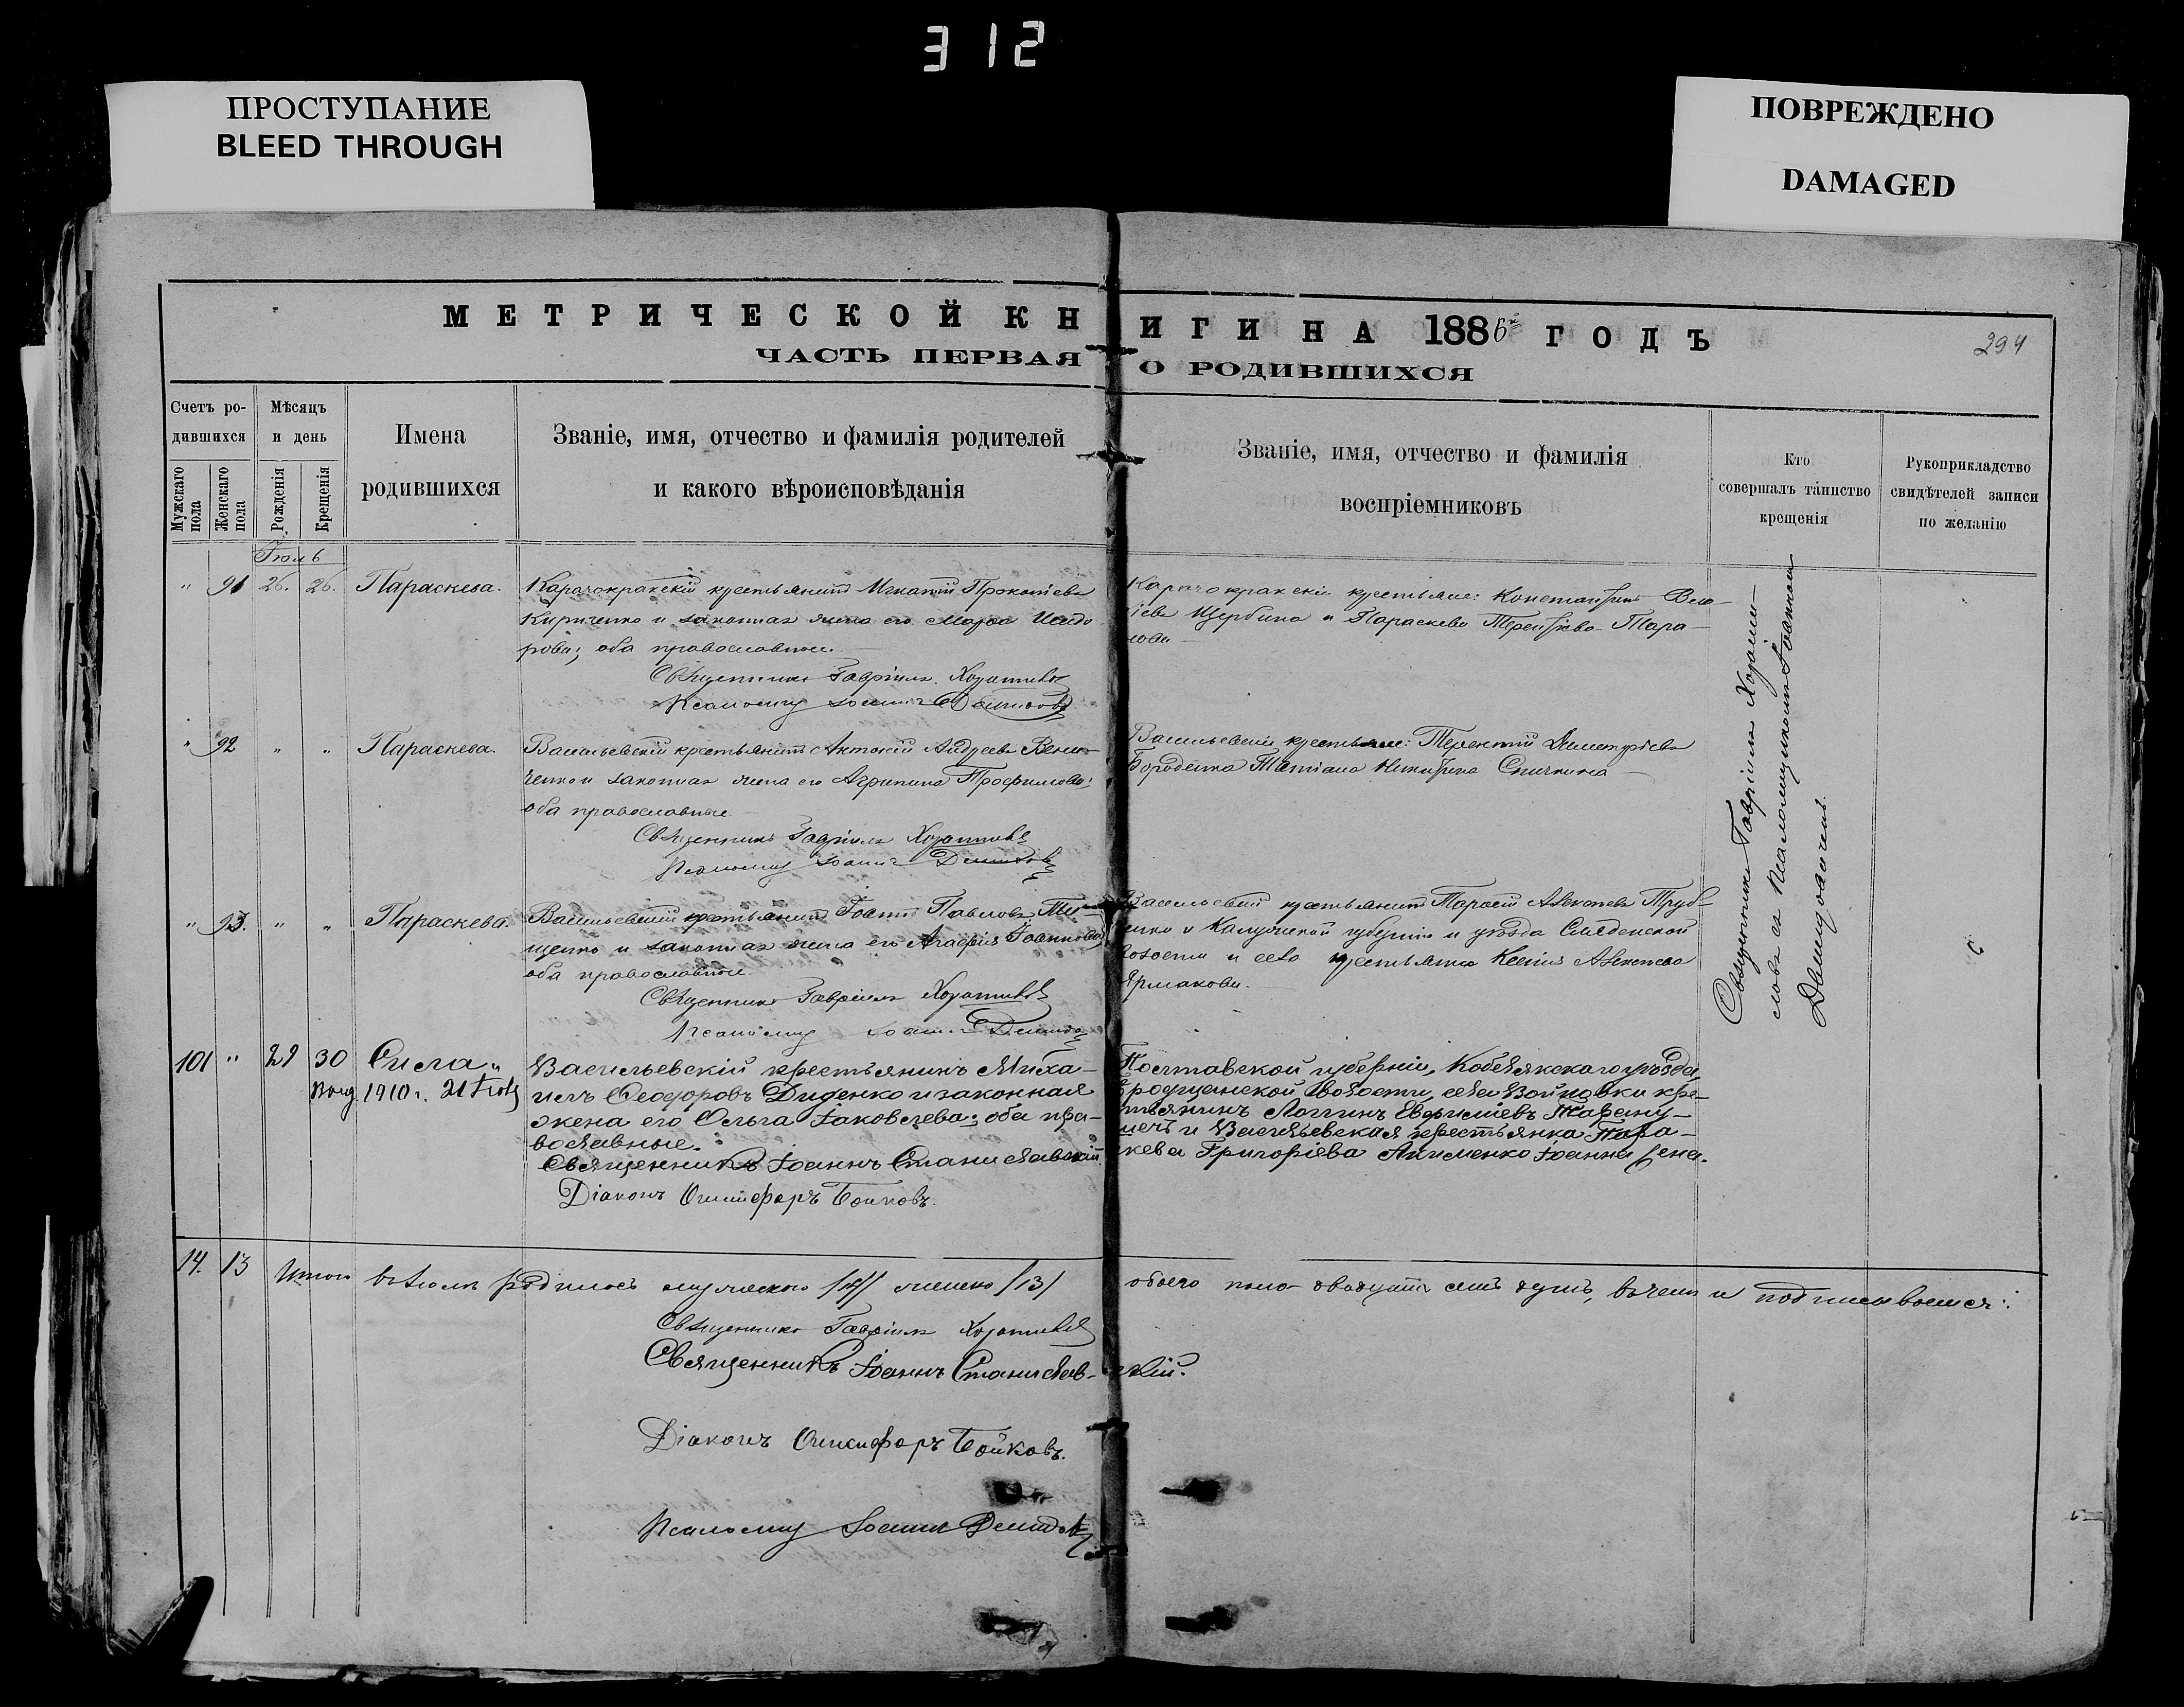 312
ПРОСТУПАНИЕ
BLEED THROUGH
ПОВРЕЖДЕНО
DAMAGED
МЕТРИЧЕСКОЙ КНИГИ НА 1886й ГОДЪ
294
ЧАСТЬ ПЕРВАЯ О РОДИВШИХСЯ
Счетъ ро-
дившихся
Мужскаго
пола
Женскаго
пола
Мѣсяцъ
и день
Рожденія
Крещенія
Имена
родившихся
Званіе, имя, отчество и фамилія родителей
и какого вѣроисповѣданія
Званіе, имя, отчество и фамилія
воспріемниковъ
Кто
совершалъ таинство
крещенія
Рукоприкладство
свидѣтелей записи
по желанію
Іюль
" 91 26. 26. Параскева.
Карачокракскій крестьянинъ Игнатій Прокопіевъ
Кириченко и законная жена его Марфа Исидо
рова; оба православные.
Священникъ Гавріилъ
Іоаннъ Демидовъ
Карачокракскіе крестьяне: Константинъ
Щербина и Параскева Терентіева
" 92 " " Параскева.
Васильевскій крестьянинъ Антоній Андреевъ
ченко и законная жена его Агрипина Трофимова;
оба православные
Священникъ Гавріилъ
Іоаннъ Демидовъ
Васильевскіе крестьяне: Терентій Димитріевъ
Бороденко Татіана Никитина
" 93. " " Параскева.
Васильевскій крестьянинъ Іоаннъ Павловъ
щенко и законная жена его Агафія Іоаннова;
оба православные
Священникъ Гавріилъ
Іоаннъ
Васильевскій крестьянинъ Тарасій Алексѣевъ Труб-
енко и Калужской губерніи и уѣзда
волости и села крестьянка Ксенія Алексѣева
Ермакова.
Священникъ Гавріилъ
съ псаломщикомъ Іоанномъ
101 " 29 30 Сила "
1910 г. 21
Васильевскій крестьянинъ Миха-
илъ Ѳеодоровъ Диденко и законная
жена его Ольга Іаковлева; оба пра-
вославные.
Священникъ Іоаннъ Станиславскій.
Діаконъ Онисифоръ Бойковъ.
Полтавской губерніи, Кобелякскаго уѣзда,
волости, села Войновки кре-
стьянинъ Логгинъ Евфиміевъ
и Васильевская крестьянка Пара-
скева Григоріева Акименко Іоанна жена.
14. 13
Итого въ Іюлѣ родилось мужескаго /14/ женскаго /13/ обоего пола двадцать семь душъ, въ чемъ и подписываемся:
Священникъ Гавріилъ
Священникъ Іоаннъ Станиславскій.
Діаконъ Онисифоръ Бойковъ.
Іоаннъ Демидовъ